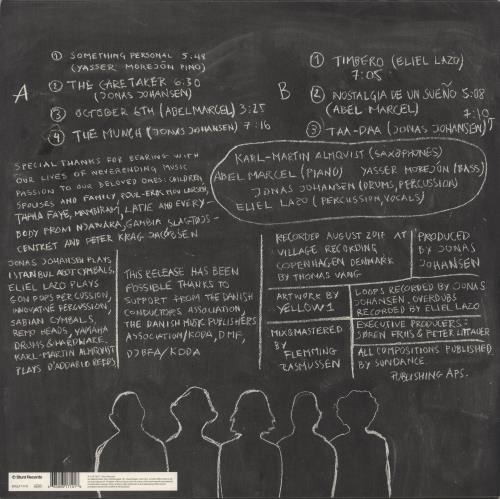 A
① SOMETHING PERSONAL 5.48
(YASSER MOREJÓN PINO)
② THE CARETAKER 6.30
(JONAS JOHANSEN)
③ OCTOBER 6TH (ABEL MARCEL) 3:25
④ THE MUNCH (JONAS JOHANSEN) 7:16
B
① TIMBERO (ELIEL LAZO)
7:05
② NOSTALGIA DE UN SUEÑO 5:08
(ABEL MARCEL)
③ TAA-DAA (JONAS JOHANSEN) 7:10
KARL-MARTIN ALMQVIST (SAXOPHONES)
ABEL MARCEL (PIANO) YASSER MOREJÓN (BASS)
JONAS JOHANSEN (DRUMS, PERCUSSION)
ELIEL LAZO (PERCUSSION, VOCALS)
SPECIAL THANKS FOR BEARING WITH
OUR LIVES OF NEVERENDING MUSIC
PASSION TO OUR BELOVED ONES: CHILDREN,
SPOUSES AND FAMILY POUL-ERIK MOU LARSEN,
FAYE, LATIC AND EVERY-
BODY FROM NJAWARA, GAMBIA
CENTRET AND PETER KRAG JACOBSEN
JONAS JOHANSEN PLAYS
ISTANBUL AGOP CYMBALS,
ELIEL LAZO PLAYS
GON POPS PERCUSSION,
INNOVATIVE PERCUSSION,
SABIAN CYMBALS,
REMO HEADS, YAMAHA
DRUMS & HARDWARE.
KARL-MARTIN ALMQVIST
PLAYS D'ADDARIO REEDS.
THIS RELEASE HAS BEEN
POSSIBLE THANKS TO
SUPPORT FROM THE DANISH
CONDUCTORS ASSOCIATION,
THE DANISH MUSIC PUBLISHERS
ASSOCIATION/KODA, DMF,
DJBFA/KODA
RECORDED AUGUST 2017 AT
VILLAGE RECORDING
COPENHAGEN DENMARK
BY THOMAS VANG
PRODUCED
BY JONAS
JOHANSEN
ARTWORK BY
YELLOW1
MIX&MASTERED
BY
FLEMMING
RASMUSSEN
LOOPS RECORDED BY JONAS
JOHANSEN, OVERDUBS
RECORDED BY ELIEL LAZO
EXECUTIVE PRODUCERS:
SØREN FRIIS & PETER LITTAUER
ALL COMPOSITIONS PUBLISHED
BY SUNDANCE
PUBLISHING APS.
Stunt Records